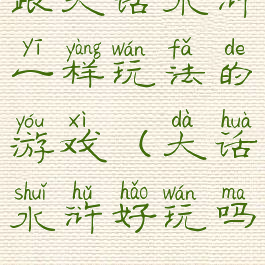 跟大话水浒
yī yàng wán fǎ de
一样玩法的
yóu xì dà huà
游戏(大话
shuǐ hǔ hǎo wán ma
水浒好玩吗